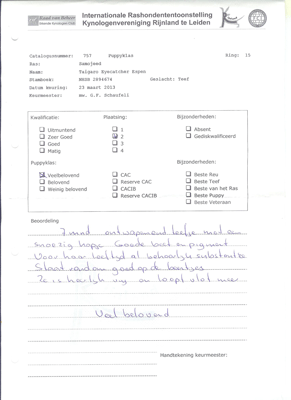 Raad van Beheer
Internationale Rashondententoonstelling
Kynologenvereniging Rijnland te Leiden
Catalogusnummer: 757 Puppyklas Ring: 15
Ras: Samojeed
Naam: Tulgars Eyecatcher Espen
Stamboek: NHSB 2896474 Geslacht: Teef
Datum keuring: 23 maart 2013
Keurmeester: mw. G.F. Schaufeli
Kwalificatie: Plaatsing: Bijzonderheden:
Uitmuntend 1 Absent
Zeer Goed 2 Gediskwalificeerd
Goed 3
Matig 4
Puppyklas: Bijzonderheden:
Veelbelovend CAC Beste Reu
Belovend Reserve CAC Beste Teef
Weinig belovend CACIB Beste van het Ras
Reserve CACIB Beste Puppy
Beste Veteraan
Beoordeling
7 mnd ontwapenend teefje met een
snoezig hopje. Goede vacht en pigment
Voor haar leeftijd al behoorlijke substantie
Staat rondom goed op de beentjes
Ze is heerlijk vrij en loopt vlot mee
Veel belovend
Handtekening keurmeester: